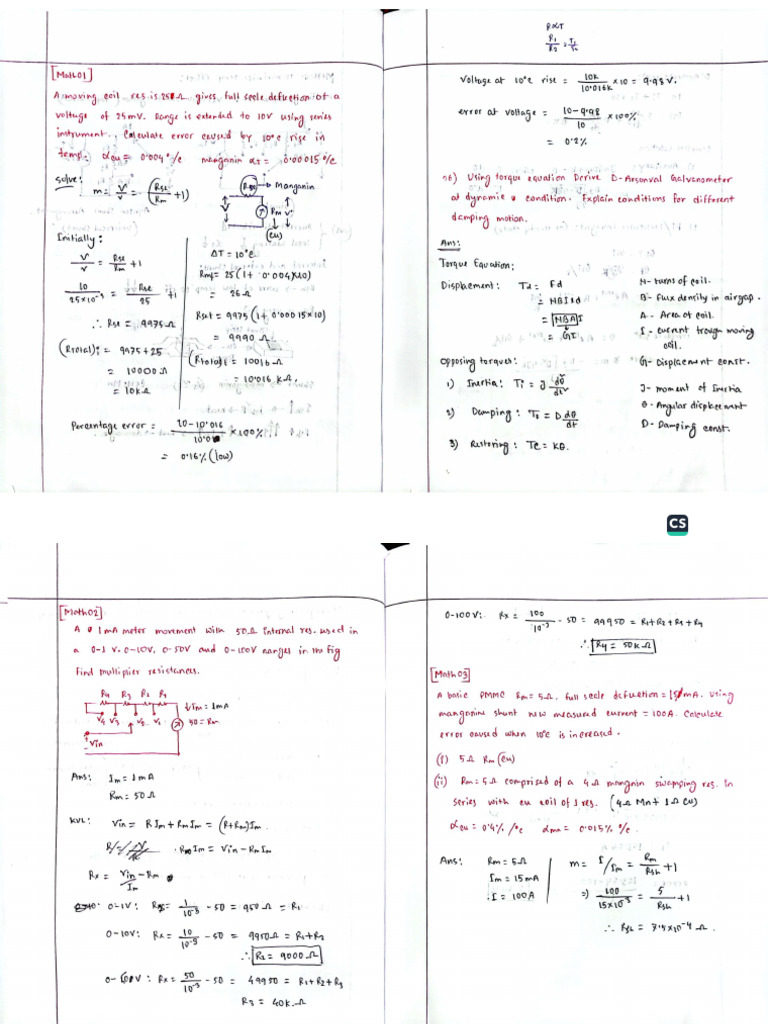 [Math01]
A moving coil res. is 25Ω gives full scele deflection at a
voltage of 25mV. Range is extended to 10V using series
instrument. Calculate error caused by 10°c rise in
temp. αcu = 0.004°/c manganin αT = 0.00015°/c
Solve:
m = V/v = (Rse/Rm + 1)
Rse → Manganin
V
Rm v
(Cu)
Initially:
V/v = Rse/Rm + 1
10/25×10⁻³ = Rse/25 + 1
∴ Rse = 9975Ω
(Rtotal)i = 9975+25
= 10000Ω
= 10kΩ
ΔT = 10°c
Rmt = 25(1+0.004×10)
= 26Ω
Rset = 9975(1+0.00015×10)
= 9990Ω
(Rtotal)t = 10016Ω
= 10.016 kΩ.
Percentage error = 10-10.016/10.0 ×100%
= 0.16% (low)
R∝T
R1/R2 = T1/T2
Voltage at 10°c rise = 10k/10.016k ×10 = 9.98V.
error at voltage = 10-9.98/10 ×100%
= 0.2%
06) Using torque equation Derive D-Arsonval Galvanometer
at dynamic condition. Explain conditions for different
damping motion.
Ans:
Torque Equation:
Displacement: Td = Fd
= NBIld
= NBA I
= GI
N- turns of coil.
B- Flux density in airgap.
A- Area of coil.
I- current trough moving
coil.
G- Displacement const.
Opposing torques:
1) Inertia: Ti = J d²θ/dt²
2) Damping: TD = D dθ/dt
3) Restoring: Tc = Kθ.
J- moment of Inertia
θ- Angular displacement
D- Damping const.
CS
[Math02]
A 1mA meter movement with 50Ω internal res. used in
a 0-1 V. 0-10V, 0-50V and 0-100V ranges in the fig
Find multiplier resistances.
R4 R3 R2 R1
↓Im = 1mA
V4 V3 V2 V1
50 = Rm
Vin
Ans: Im = 1mA
Rm = 50Ω
KVL: Vin = R Im + Rm Im = (R+Rm)Im
R Im = Vin - Rm Im
Rx = Vin/Im - Rm
0-1V: Rx = 1/10⁻³ - 50 = 950Ω = R1
0-10V: Rx = 10/10⁻³ - 50 = 9950Ω = R1+R2
∴ R2 = 9000Ω
0-50V: Rx = 50/10⁻³ - 50 = 49950 = R1+R2+R3
R3 = 40kΩ
0-100V: Rx = 100/10⁻³ - 50 = 99950 = R1+R2+R3+R4
∴ R4 = 50kΩ
[Math03]
A basic PMMC Rm = 5Ω. full scele deflection = 15mA. Using
manganine shunt new measured current = 100A. Calculate
error caused when 10°c is increased.
(i) 5Ω Rm (cu)
(ii) Rm = 5Ω comprised of a 4Ω mangnin swamping res. In
series with cu coil of 1 res. (4Ω Mn + 1Ω Cu)
αcu = 0.4% /°c αmn = 0.015%/c.
Ans: Rm = 5Ω
Im = 15mA
I = 100A
m = I/Im = Rm/Rsh + 1
⇒ 100/15×10⁻³ = 5/Rsh + 1
∴ Rsh = 7.5×10⁻⁴Ω.